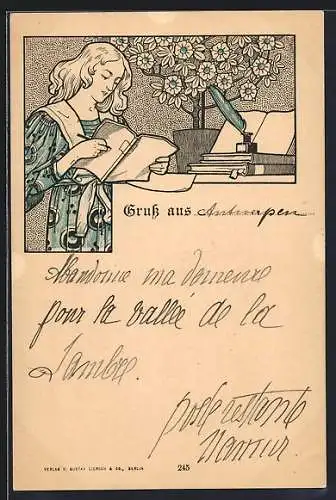 Gruß aus Antwerpen
Abandonne ma demeure
pour la vallée de la
Sambre.
poste restante
Namur
VERLAG V. GUSTAV LIERSCH & CO., BERLIN 245